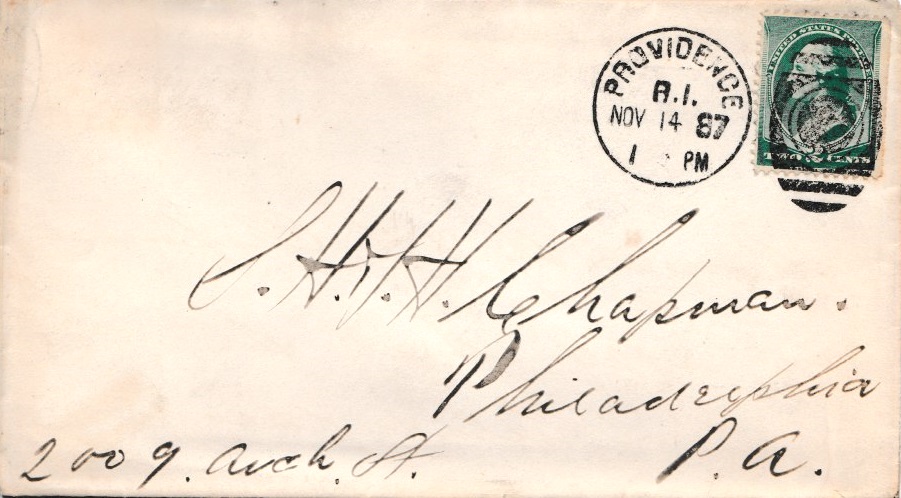 PROVIDENCE
R.I.
NOV 14 87
1 PM
UNITED STATES POSTAGE
TWO 2 CENTS
S. H. & H. Chapman.
Philadelphia
P. A.
2009. Arch. St.